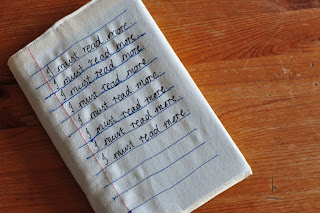 I must read more...
I must read more...
I must read more...
I must read more...
I must read more...
I must read more...
I must read more...
I must read more...